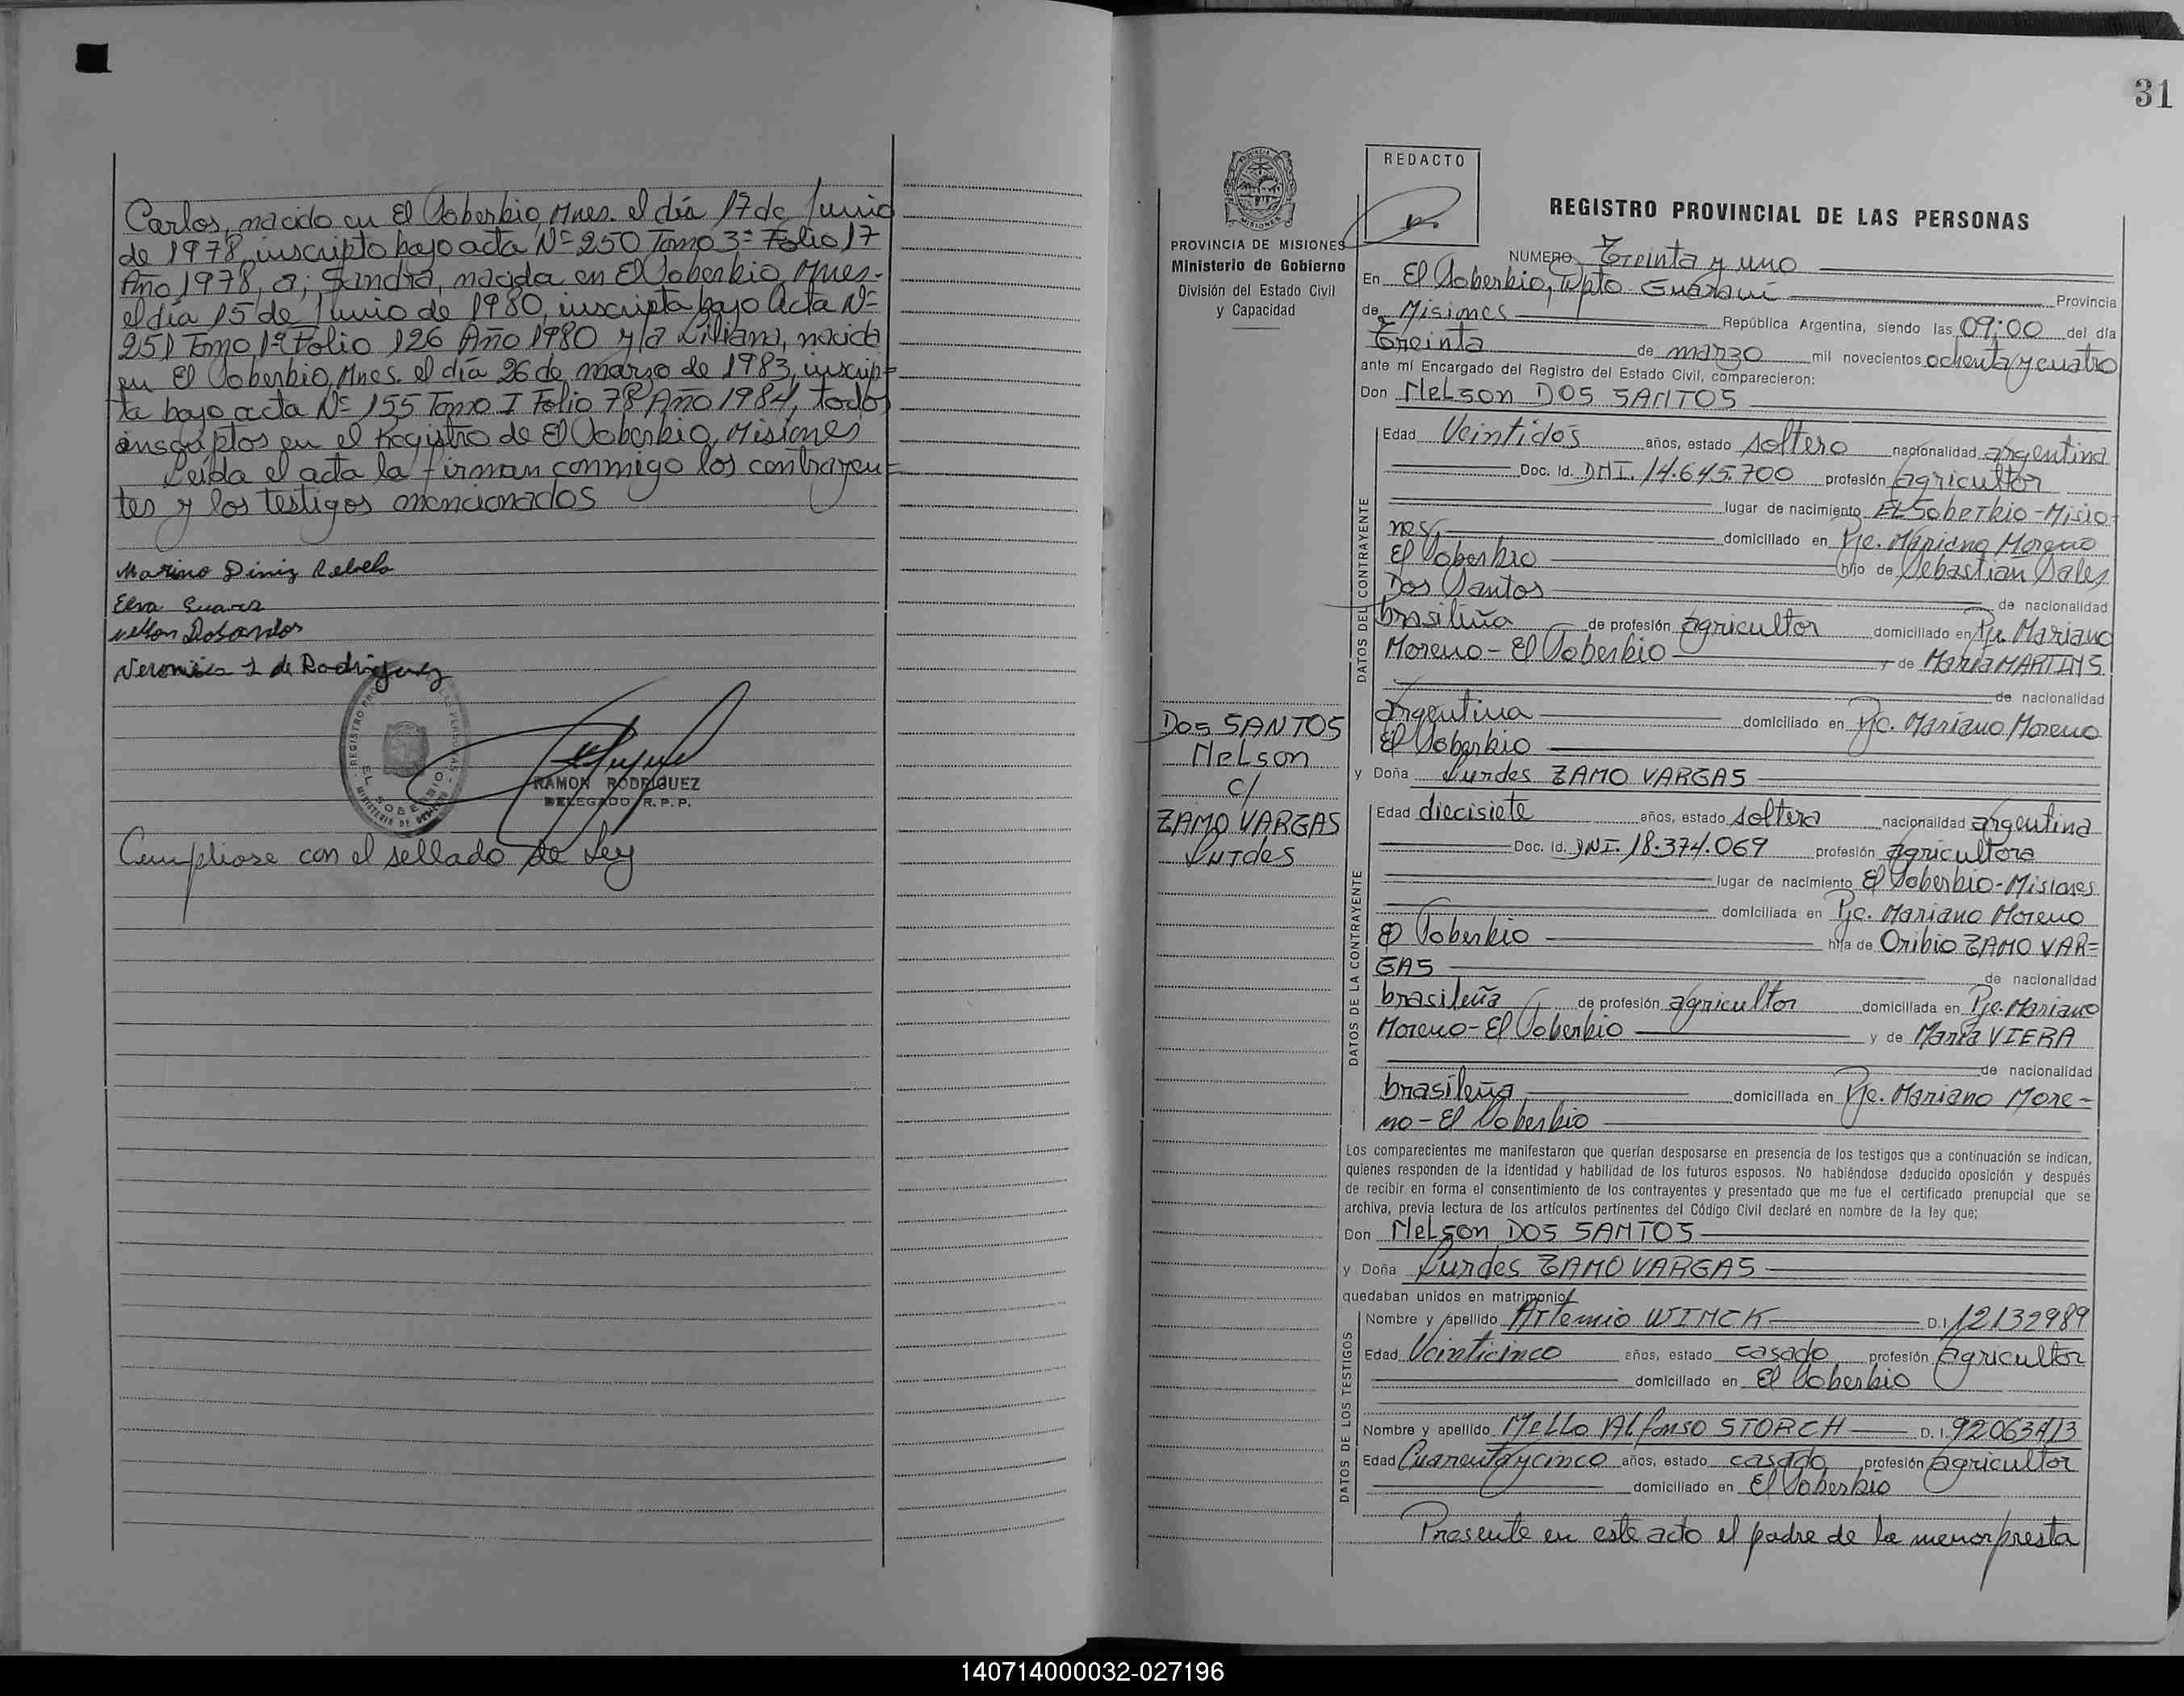 Carlos, nacido en El Soberbio, Mnes. el día 17 de Junio
de 1978, inscripto bajo acta Nº 250 Tomo 3º Folio 17
Año 1978, a; Sandra, nacida en El Soberbio, Mnes.
el día 15 de Junio de 1980, inscripta bajo Acta Nº
251 Tomo 1º Folio 126 Año 1980 y/a Liliana, nacida
en El Soberbio, Mnes. el día 26 de marzo de 1983, inscrip-
ta bajo acta Nº 155 Tomo I Folio 78 Año 1984, todos
inscriptos en el Registro de El Soberbio, Misiones
Leída el acta la firman conmigo los contrayen=
tes y los testigos mencionados
Marino Diniz Rebelo
Elva Suarez
Nelson Dosandos
Veronica I de Rodriguez
EL SOBERBIO
RAMON RODRIGUEZ
DELEGADO R. P. P.
Cumpliose con el sellado de Ley
31
PROVINCIA DE MISIONES
Ministerio de Gobierno
División del Estado Civil
y Capacidad
REDACTO
REGISTRO PROVINCIAL DE LAS PERSONAS
NUMERO Treinta y uno
En El Soberbio, Dpto. Guaraní Provincia
de Misiones República Argentina, siendo las 09:00 del día
Treinta de marzo mil novecientos ochenta y cuatro
ante mí Encargado del Registro del Estado Civil, comparecieron:
Don Nelson DOS SANTOS
DATOS DEL CONTRAYENTE
Edad Veintidos años, estado soltero nacionalidad argentina
Doc. Id. DNI. 14.645.700 profesión agricultor
lugar de nacimiento El Soberbio-Misio-
nes, domiciliado en Pje. Mariano Moreno
El Soberbio hijo de Sebastian Sales
Dos Santos de nacionalidad
brasileña de profesión agricultor domiciliado en Pje. Mariano
Moreno- El Soberbio y de Maria MARTINS
de nacionalidad
argentina domiciliado en Pje. Mariano Moreno
El Soberbio
DOS SANTOS
Nelson
c/
ZAMO VARGAS
Lurdes
y Doña Lurdes ZAMO VARGAS
DATOS DE LA CONTRAYENTE
Edad diecisiete años, estado soltera nacionalidad argentina
Doc. Id. DNI. 18.374.069 profesión agricultora
lugar de nacimiento El Soberbio-Misiones
domiciliada en Pje. Mariano Moreno
El Soberbio hija de Oribio ZAMO VAR=
GAS de nacionalidad
brasileña de profesión agricultor domiciliada en Pje. Mariano
Moreno-El Soberbio y de María VIERA
de nacionalidad
brasileña domiciliada en Pje. Mariano More-
no-El Soberbio
Los comparecientes me manifestaron que querían desposarse en presencia de los testigos que a continuación se indican,
quienes responden de la identidad y habilidad de los futuros esposos. No habiéndose deducido oposición y después
de recibir en forma el consentimiento de los contrayentes y presentado que me fue el certificado prenupcial que se
archiva, previa lectura de los artículos pertinentes del Código Civil declaré en nombre de la ley que;
Don Nelson DOS SANTOS
y Doña Lurdes ZAMO VARGAS
quedaban unidos en matrimonio
DATOS DE LOS TESTIGOS
Nombre y apellido Artemio WINCK D.I. 12132989
Edad Veinticinco años, estado casado profesión agricultor
domiciliado en El Soberbio
Nombre y apellido Mello Alfonso STORCH D. I. 92063413
Edad Cuarenta y cinco años, estado casado profesión agricultor
domiciliado en El Soberbio
Presente en este acto el padre de la menor presta
140714000032-027196